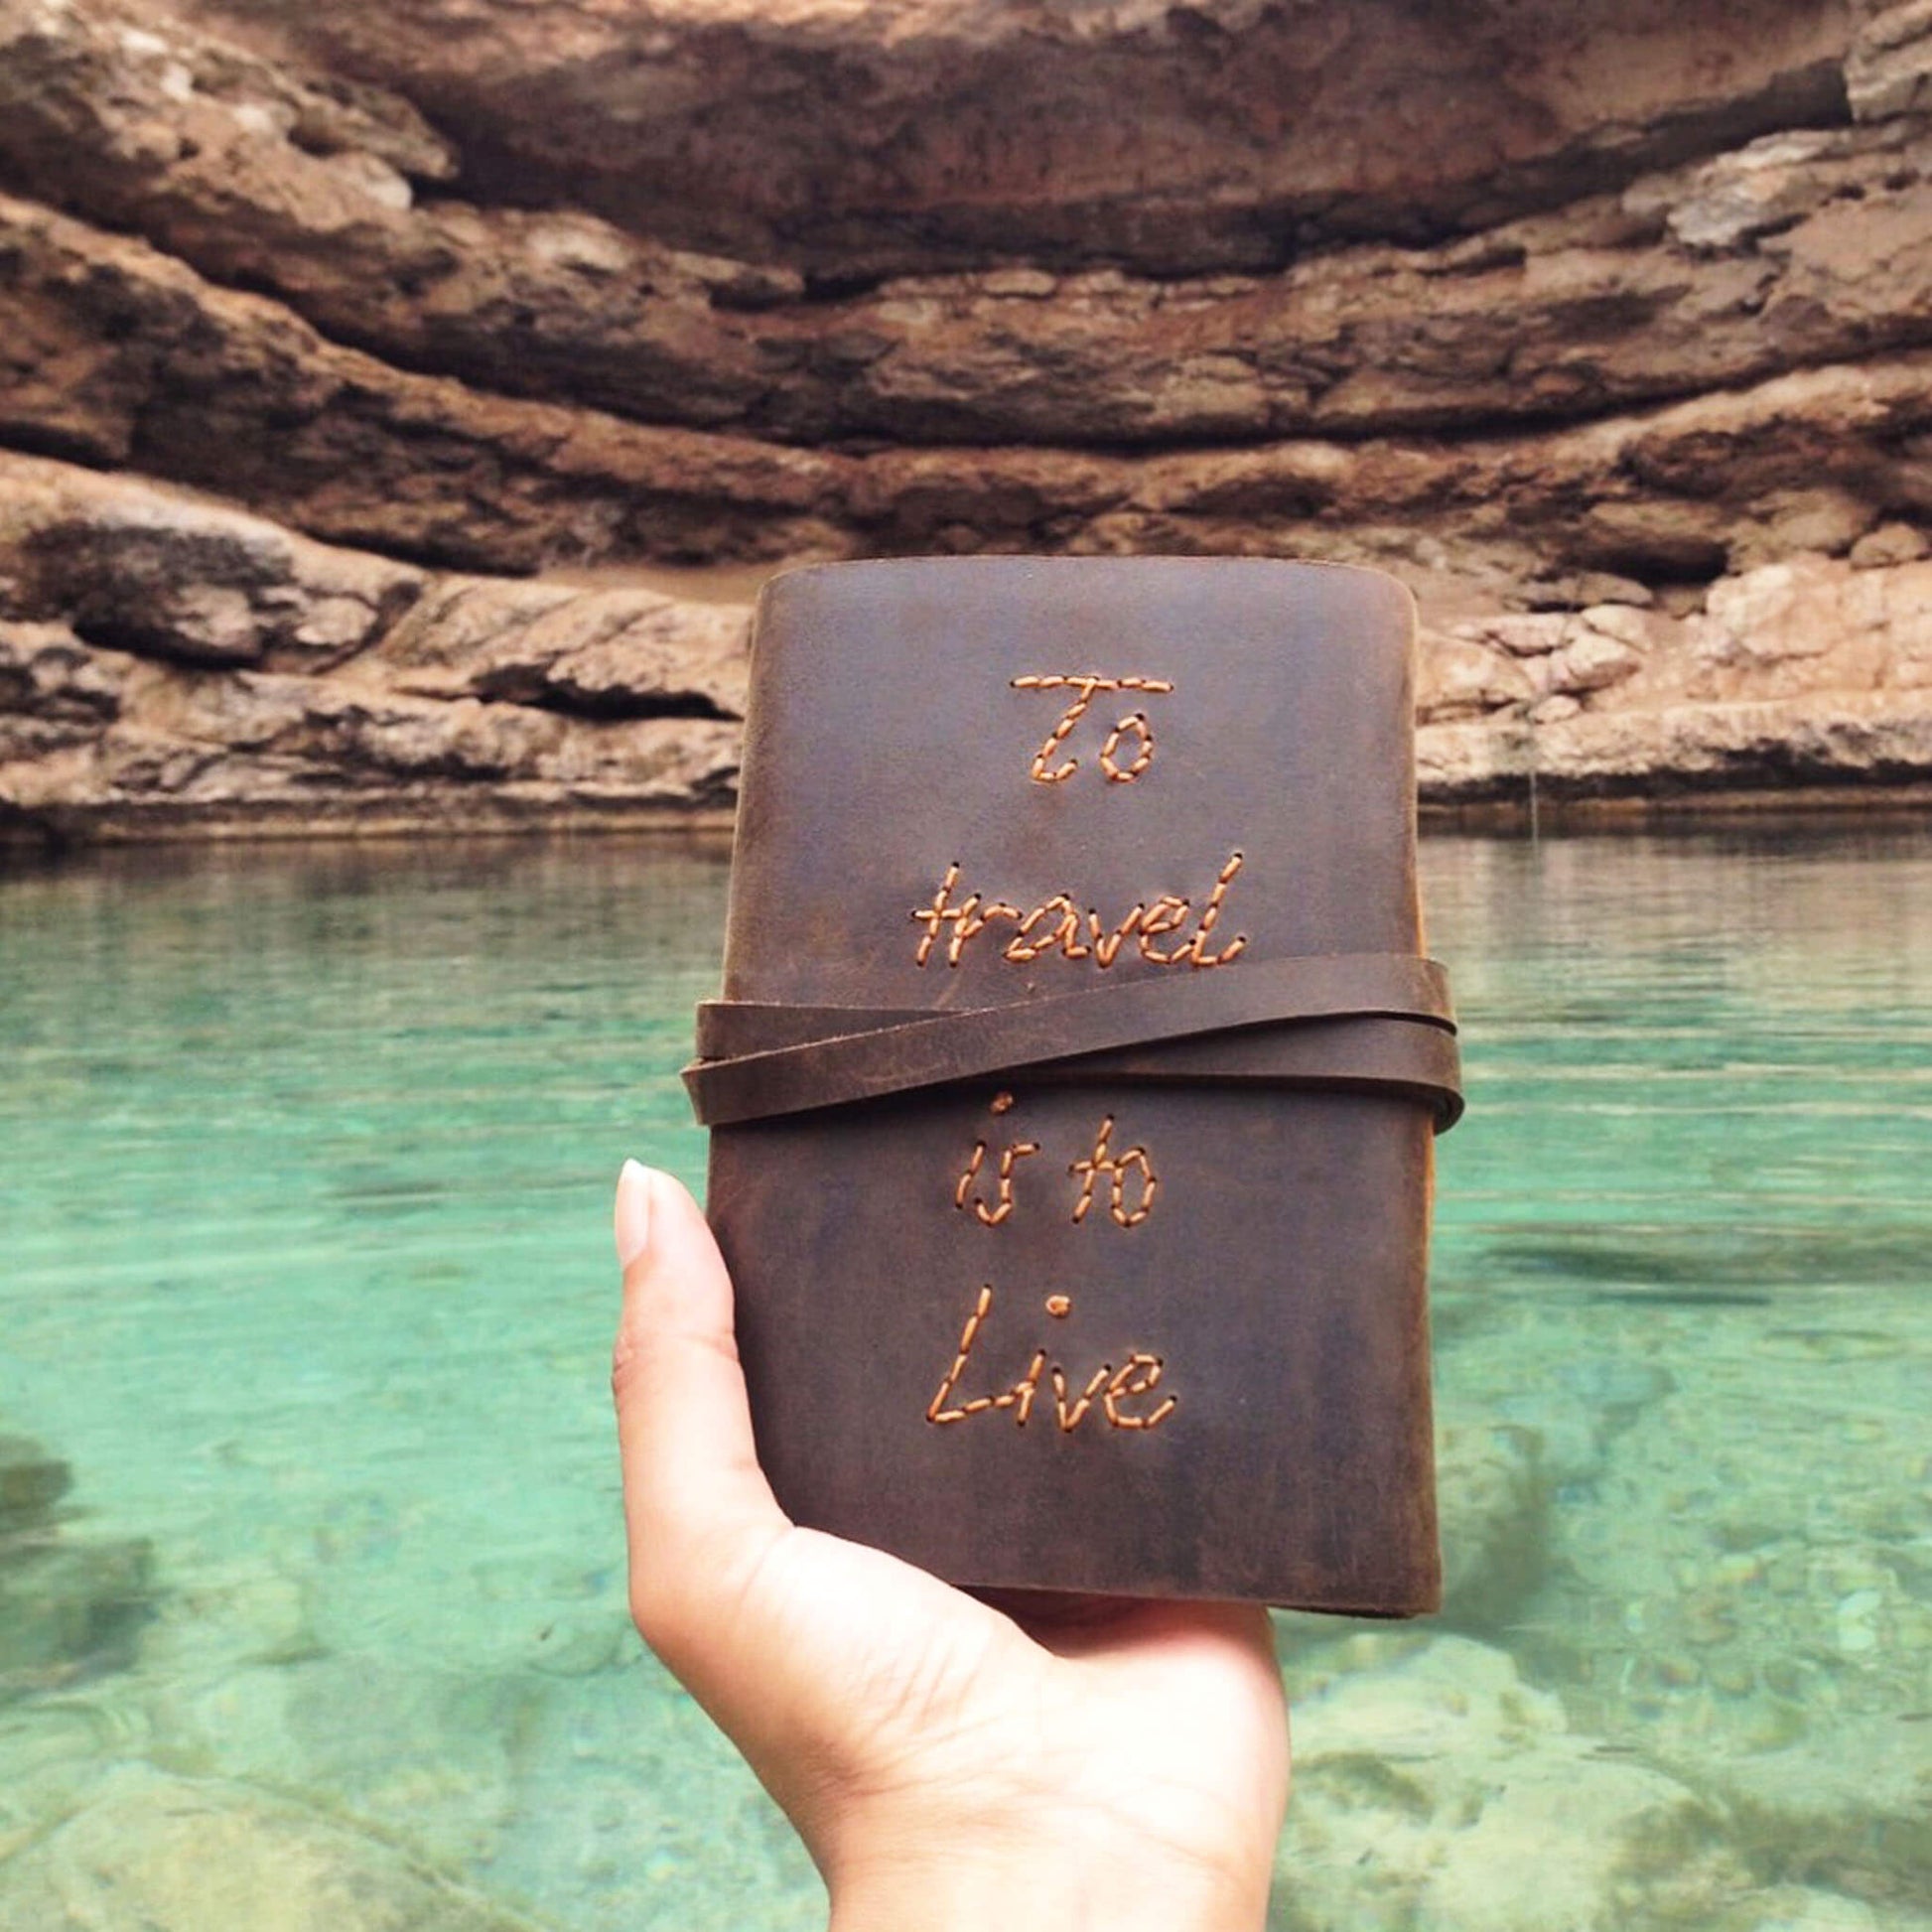 To
travel
is to
Live